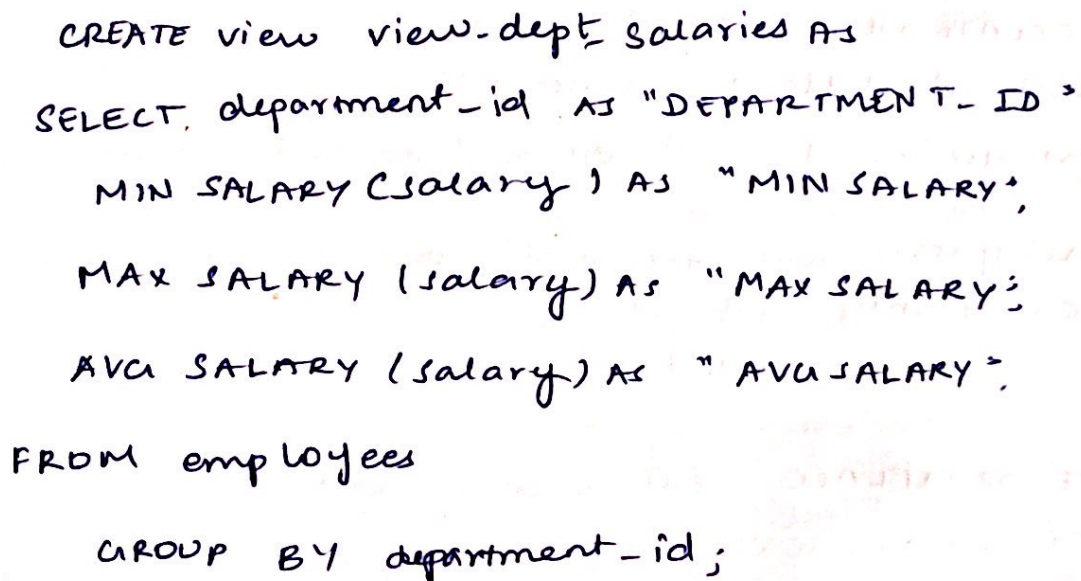 CREATE view view-dept_salaries AS
SELECT. department_id AS "DEPARTMENT_ID"
MIN SALARY (salary) AS "MIN SALARY",
MAX SALARY (salary) AS "MAX SALARY";
AVG SALARY (salary) AS "AVG SALARY".
FROM employees
GROUP BY department_id;